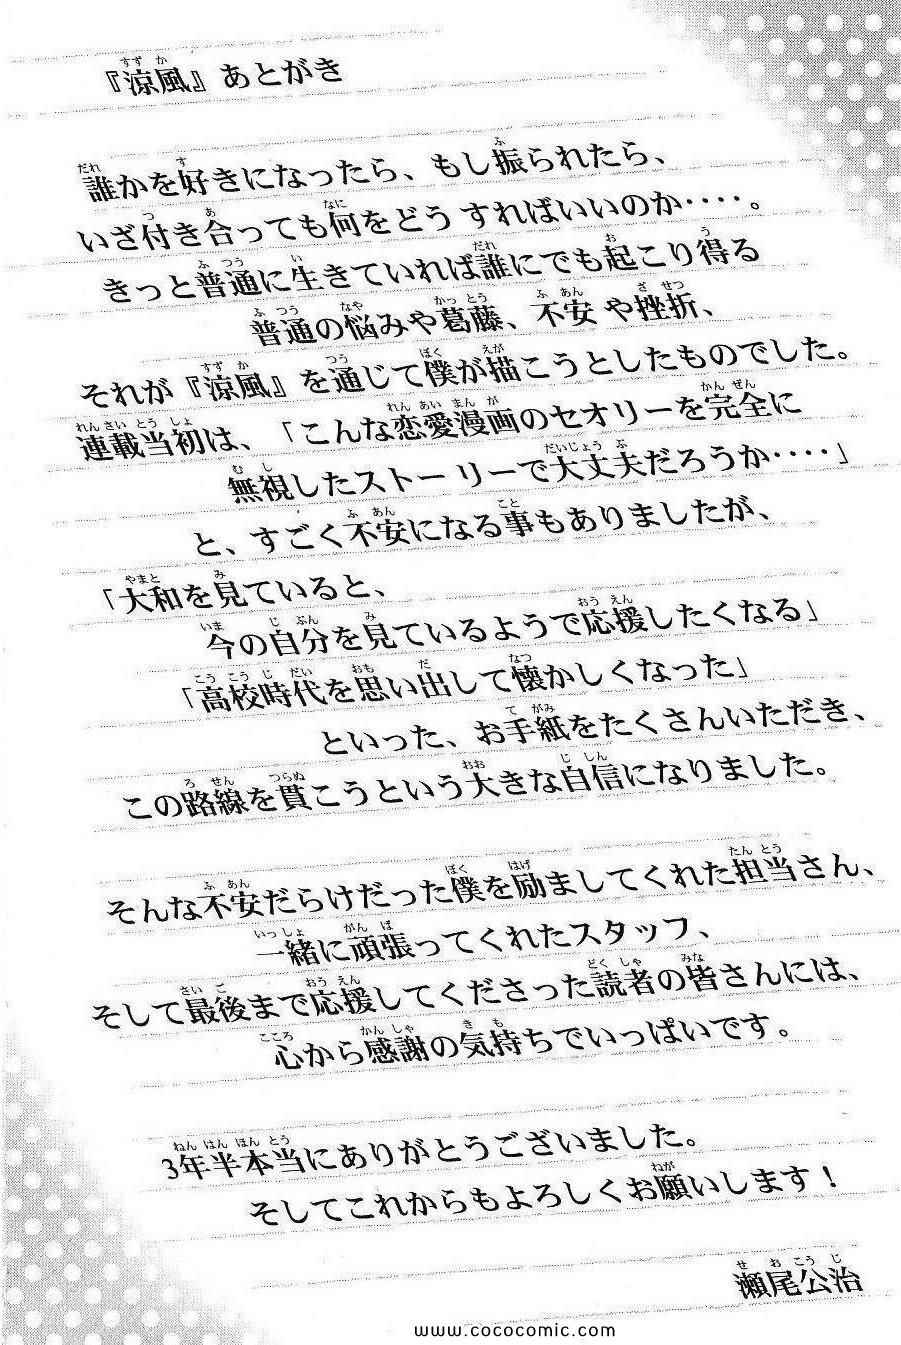 『涼風』あとがき
誰かを好きになったら、もし振られたら、
いざ付き合っても何をどう すればいいのか‥‥。
きっと普通に生きていれば誰にでも起こり得る
普通の悩みや葛藤、不安 や挫折、
それが『涼風』を通じて僕が描こうとしたものでした。
連載当初は、「こんな恋愛漫画のセオリーを完全に
無視したストーリーで大丈夫だろうか‥‥」
と、すごく不安になる事もありましたが、
「大和を見ていると、
今の自分を見ているようで応援したくなる」
「高校時代を思い出して懐かしくなった」
といった、お手紙をたくさんいただき、
この路線を貫こうという大きな自信になりました。
そんな不安だらけだった僕を励ましてくれた担当さん、
一緒に頑張ってくれたスタッフ、
そして最後まで応援してくださった読者の皆さんには、
心から感謝の気持ちでいっぱいです。
3年半本当にありがとうございました。
そしてこれからもよろしくお願いします！
瀬尾公治
www.cococomic.com